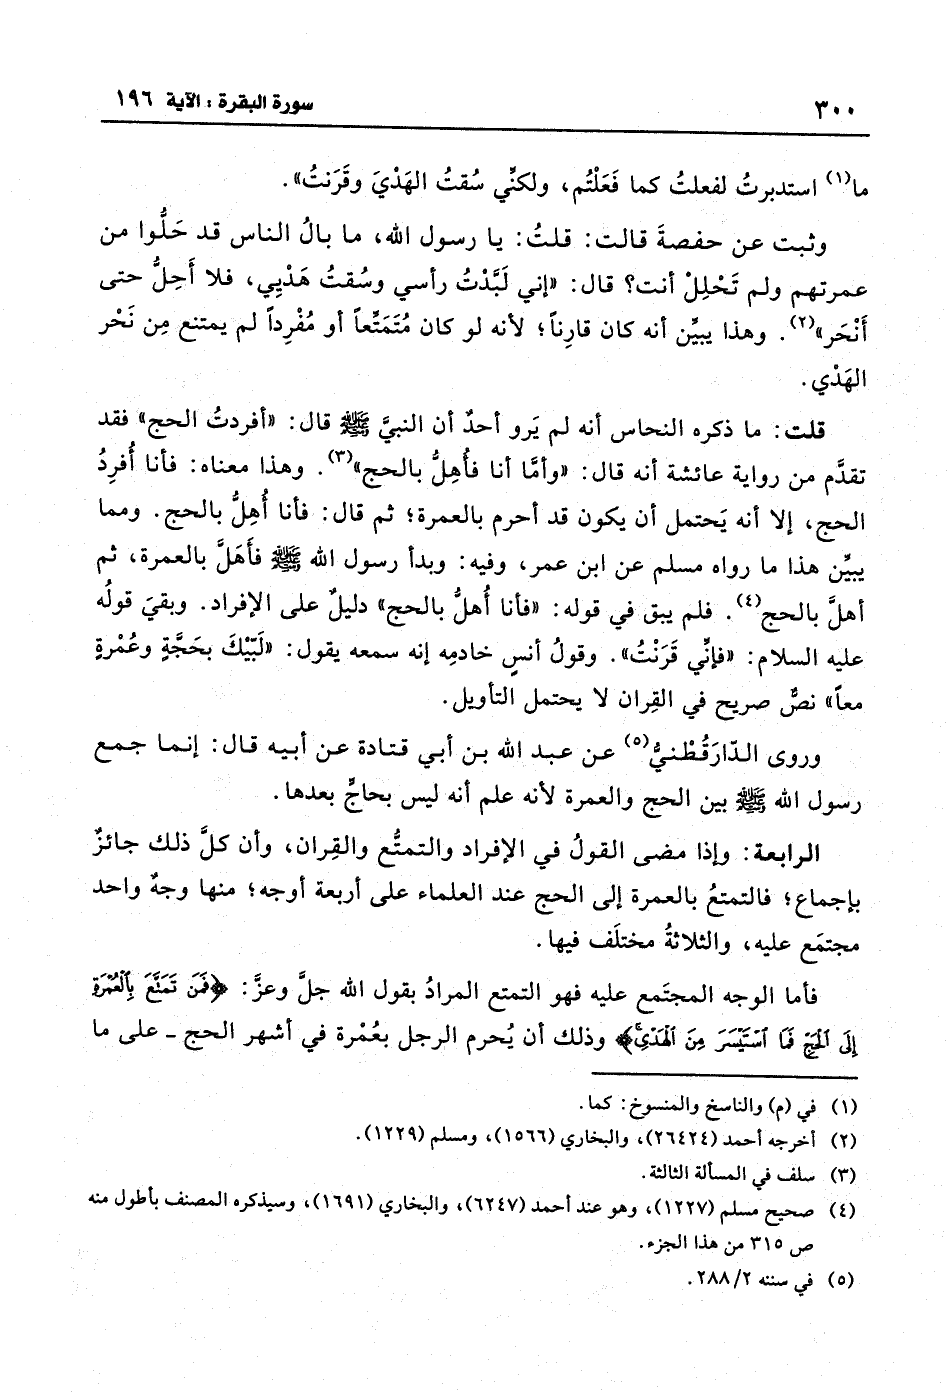 ٣٠٠ سورة البقرة : الآية ١٩٦
ما(١) استدبرتُ لفعلتُ كما فَعَلْتُم، ولكنِّي سُقتُ الهَدْيَ وقَرَنتُ».
وثبت عن حفصةَ قالت: قلتُ: يا رسول الله، ما بالُ الناس قد حَلُّوا من
عمرتهم ولم تَحْلِلْ أنت؟ قال: «إني لَبَّدْتُ رأسي وسُقتُ هَدْيِي، فلا أَحِلُّ حتى
أَنْحَر»(٢). وهذا يبيِّن أنه كان قارِناً؛ لأنه لو كان مُتَمَتِّعاً أو مُفْرِداً لم يمتنع مِن نَحْر
الهَدْي.
قلت: ما ذكره النحاس أنه لم يَرو أحدٌ أن النبيَّ ﷺ قال: «أفردتُ الحج» فقد
تقدَّم من رواية عائشة أنه قال: «وأمَّا أنا فأُهِلُّ بالحج»(٣). وهذا معناه: فأنا أُفرِدُ
الحج، إلا أنه يَحتمل أن يكون قد أحرم بالعمرة؛ ثم قال: فأنا أُهِلُّ بالحج. ومما
يبيِّن هذا ما رواه مسلم عن ابن عمر، وفيه: وبدأ رسول الله ﷺ فأَهَلَّ بالعمرة، ثم
أهلَّ بالحج(٤). فلم يبق في قوله: «فأنا أُهلُّ بالحج» دليلٌ على الإفراد. وبقيَ قولُه
عليه السلام: «فإنِّي قَرَنْتُ». وقولُ أنسٍ خادمِه إنه سمعه يقول: «لَبَّيْكَ بحَجَّةٍ وعُمْرةٍ
معاً» نصٌّ صريح في القِران لا يحتمل التأويل.
وروى الدّارَقُطْنيُّ(٥) عن عبد الله بن أبي قتادة عن أبيه قال: إنما جمع
رسول الله ﷺ بين الحج والعمرة لأنه علم أنه ليس بحاجٍّ بعدها.
الرابعة: وإذا مضى القولُ في الإفراد والتمتُّع والقِران، وأن كلَّ ذلك جائزٌ
بإجماع؛ فالتمتعُ بالعمرة إلى الحج عند العلماء على أربعة أوجه؛ منها وجهٌ واحد
مجتمَع عليه، والثلاثةُ مختلَف فيها.
فأما الوجه المجتَمع عليه فهو التمتع المرادُ بقول الله جلَّ وعزَّ: ﴿فَمَن تَمَتَّعَ بِٱلْعُمْرَةِ
إِلَى ٱلْحَجِّ فَمَا ٱسْتَيْسَرَ مِنَ ٱلْهَدْيِ﴾ وذلك أن يُحرم الرجل بعُمْرة في أشهر الحج ـ على ما
(١) في (م) والناسخ والمنسوخ: كما.
(٢) أخرجه أحمد (٢٦٤٢٤)، والبخاري (١٥٦٦)، ومسلم (١٢٢٩).
(٣) سلف في المسألة الثالثة.
(٤) صحيح مسلم (١٢٢٧)، وهو عند أحمد (٦٢٤٧)، والبخاري (١٦٩١)، وسيذكره المصنف بأطول منه
ص ٣١٥ من هذا الجزء.
(٥) في سننه ٢/ ٢٨٨.